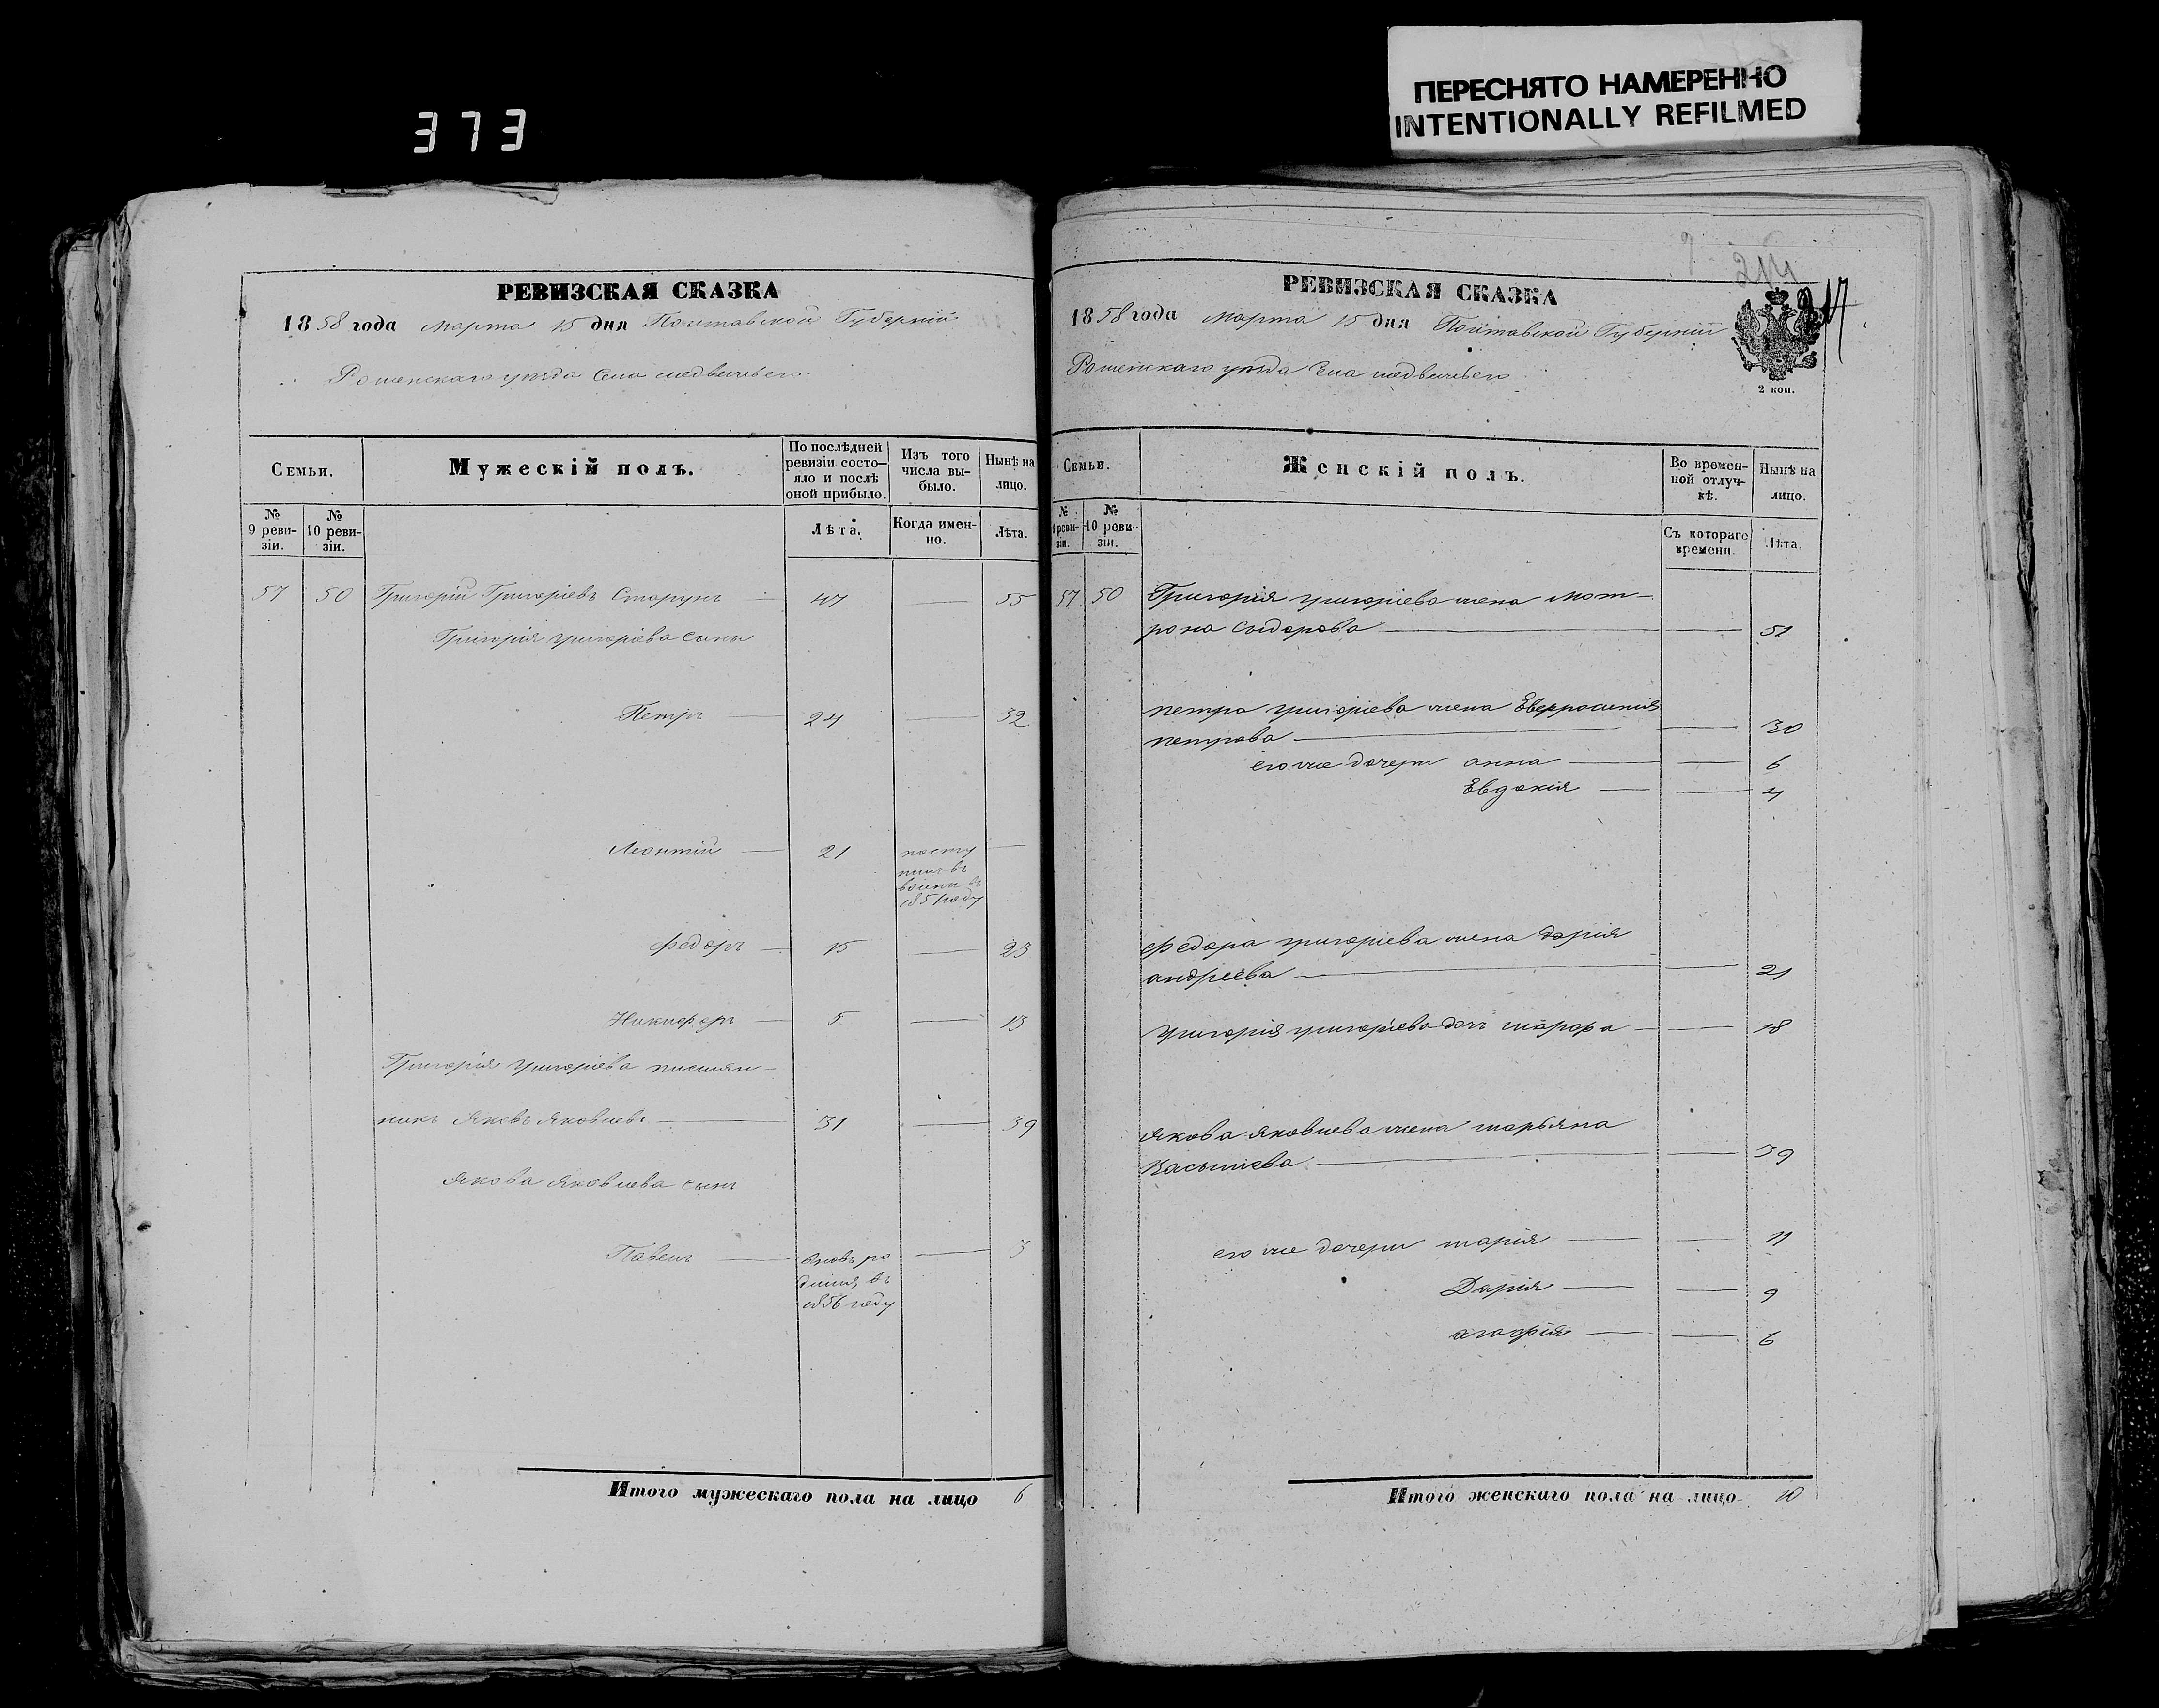 373
ПЕРЕСНЯТО НАМЕРЕННО
INTENTIONALLY REFILMED
РЕВИЗСКАЯ СКАЗКА
1858 года марта 15 дня Полтавской Губерніи
Роменскаго уѣзда Села медвежьего
Семьи.
Мужескій полъ.
По послѣдней ревизіи состо-
яло и послѣ
оной прибыло.
Изъ того
числа вы-
было.
Нынѣ на
лицо.
№
9 реви-
зіи.
№
10 реви-
зіи.
Лѣта.
Когда имен-
но.
Лѣта.
57 50 Григорій Григоріевъ 47 — 55
Григорія григоріева сынъ
Петръ 24 — 32
Леонтій 21 — посту
пилъ въ
въ
1851 году
Федоръ 15 — 23
Никифоръ 5 — 13
Григорія григоріева племян-
никъ Яковъ Яковлевъ 31 — 39
Якова Яковлева сынъ
Павелъ вновь ро — 3
дился въ
1856 году
Итого мужескаго пола на лицо 6
214
217
РЕВИЗСКАЯ СКАЗКА
1858 года марта 15 дня Полтавской Губерніи
Роменскаго уѣзда Села медвежьего
2 коп.
Семьи.
Женскій полъ.
Во времен-
ной отлуч-
кѣ.
Нынѣ на
лицо.
№
9 реви-
зіи.
№
10 реви-
зіи.
Съ котораго
времени.
Лѣта.
57 50 Григорія григоріева жена мот-
рона сидорова — 51
петра григоріева жена Евфросинія
петрова — 30
его же дочери анна — 6
Евдокія — 4
Федора григоріева жена дарія
андреева — 21
григорія григоріева дочь — 18
якова яковлева жена марьяна
Васильева — 39
его же дочери марія — 11
Дарія — 9
агафія — 6
Итого женскаго пола на лицо 10